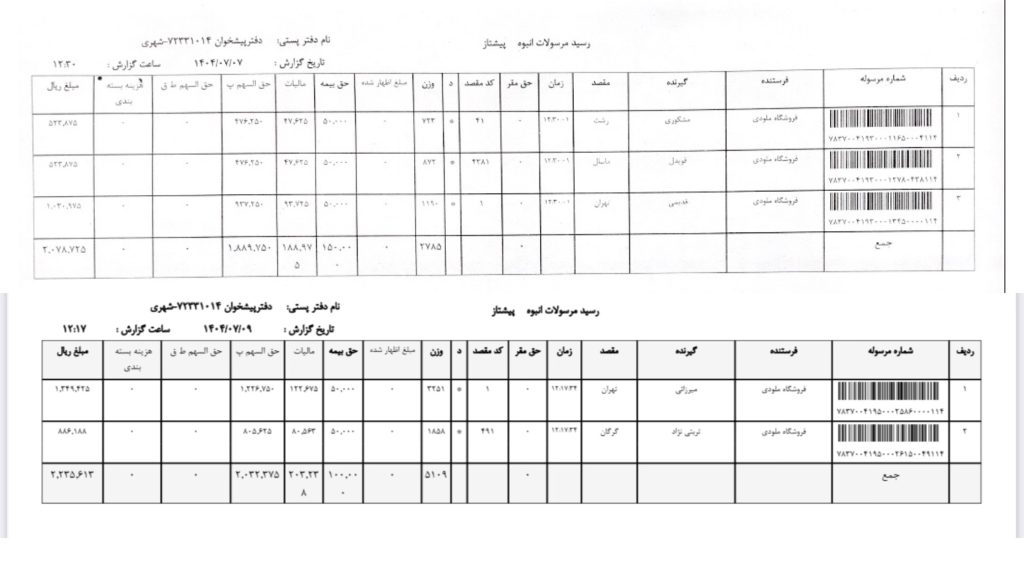 رسید مرسولات انبوه پیشتاز
نام دفتر پستی: دفترپیشخوان ۷۲۳۳۱۰۱۴-شهری
تاریخ گزارش : ۱۴۰۴/۰۷/۰۷ ساعت گزارش : ۱۲:۳۰
ردیف شماره مرسوله فرستنده گیرنده مقصد زمان حق مقر کد مقصد د وزن مبلغ اظهار شده حق بیمه مالیات حق السهم پ حق السهم ط ق هزینه بسته بندی مبلغ ریال
۱ فروشگاه ملودی مشکوری رشت ۱۲:۳۰:۰۱ ۰ ۴۱ * ۷۲۳ ۰ ۵۰,۰۰۰ ۴۷,۶۲۵ ۴۷۶,۲۵۰ ۰ ۰ ۵۲۳,۸۷۵
۷۸۳۷۰۰۴۱۹۳۰۰۰۱۱۶۵۰۰۰۴۱۱۴
۲ فروشگاه ملودی قویدل ماسال ۱۲:۳۰:۰۱ ۰ ۴۳۸۱ * ۸۷۲ ۰ ۵۰,۰۰۰ ۴۷,۶۲۵ ۴۷۶,۲۵۰ ۰ ۰ ۵۲۳,۸۷۵
۷۸۳۷۰۰۴۱۹۳۰۰۰۱۲۷۸۰۴۳۸۱۱۴
۳ فروشگاه ملودی قدیمی تهران ۱۲:۳۰:۰۱ ۰ ۱ * ۱۱۹۰ ۰ ۵۰,۰۰۰ ۹۳,۷۲۵ ۹۳۷,۲۵۰ ۰ ۰ ۱,۰۳۰,۹۷۵
۷۸۳۷۰۰۴۱۹۳۰۰۰۱۳۴۵۰۰۰۰۱۱۴
جمع ۰ ۲۷۸۵ ۰ ۱۵۰,۰۰۰ ۱۸۸,۹۷۵ ۱,۸۸۹,۷۵۰ ۰ ۰ ۲,۰۷۸,۷۲۵
رسید مرسولات انبوه پیشتاز
نام دفتر پستی: دفترپیشخوان ۷۲۳۳۱۰۱۴-شهری
تاریخ گزارش : ۱۴۰۴/۰۷/۰۹ ساعت گزارش : ۱۲:۱۷
ردیف شماره مرسوله فرستنده گیرنده مقصد زمان حق مقر کد مقصد د وزن مبلغ اظهار شده حق بیمه مالیات حق السهم پ حق السهم ط ق هزینه بسته بندی مبلغ ریال
۱ فروشگاه ملودی میرزائی تهران ۱۲:۱۷:۳۴ ۰ ۱ * ۳۲۵۱ ۰ ۵۰,۰۰۰ ۱۲۲,۶۷۵ ۱,۲۲۶,۷۵۰ ۰ ۰ ۱,۳۴۹,۴۲۵
۷۸۳۷۰۰۴۱۹۵۰۰۰۲۵۸۶۰۰۰۰۱۱۴
۲ فروشگاه ملودی تربتی نژاد گرگان ۱۲:۱۷:۳۴ ۰ ۴۹۱ * ۱۸۵۸ ۰ ۵۰,۰۰۰ ۸۰,۵۶۳ ۸۰۵,۶۲۵ ۰ ۰ ۸۸۶,۱۸۸
۷۸۳۷۰۰۴۱۹۵۰۰۰۲۶۱۵۰۰۴۹۱۱۴
جمع ۰ ۵۱۰۹ ۰ ۱۰۰,۰۰۰ ۲۰۳,۲۳۸ ۲,۰۳۲,۳۷۵ ۰ ۰ ۲,۲۳۵,۶۱۳